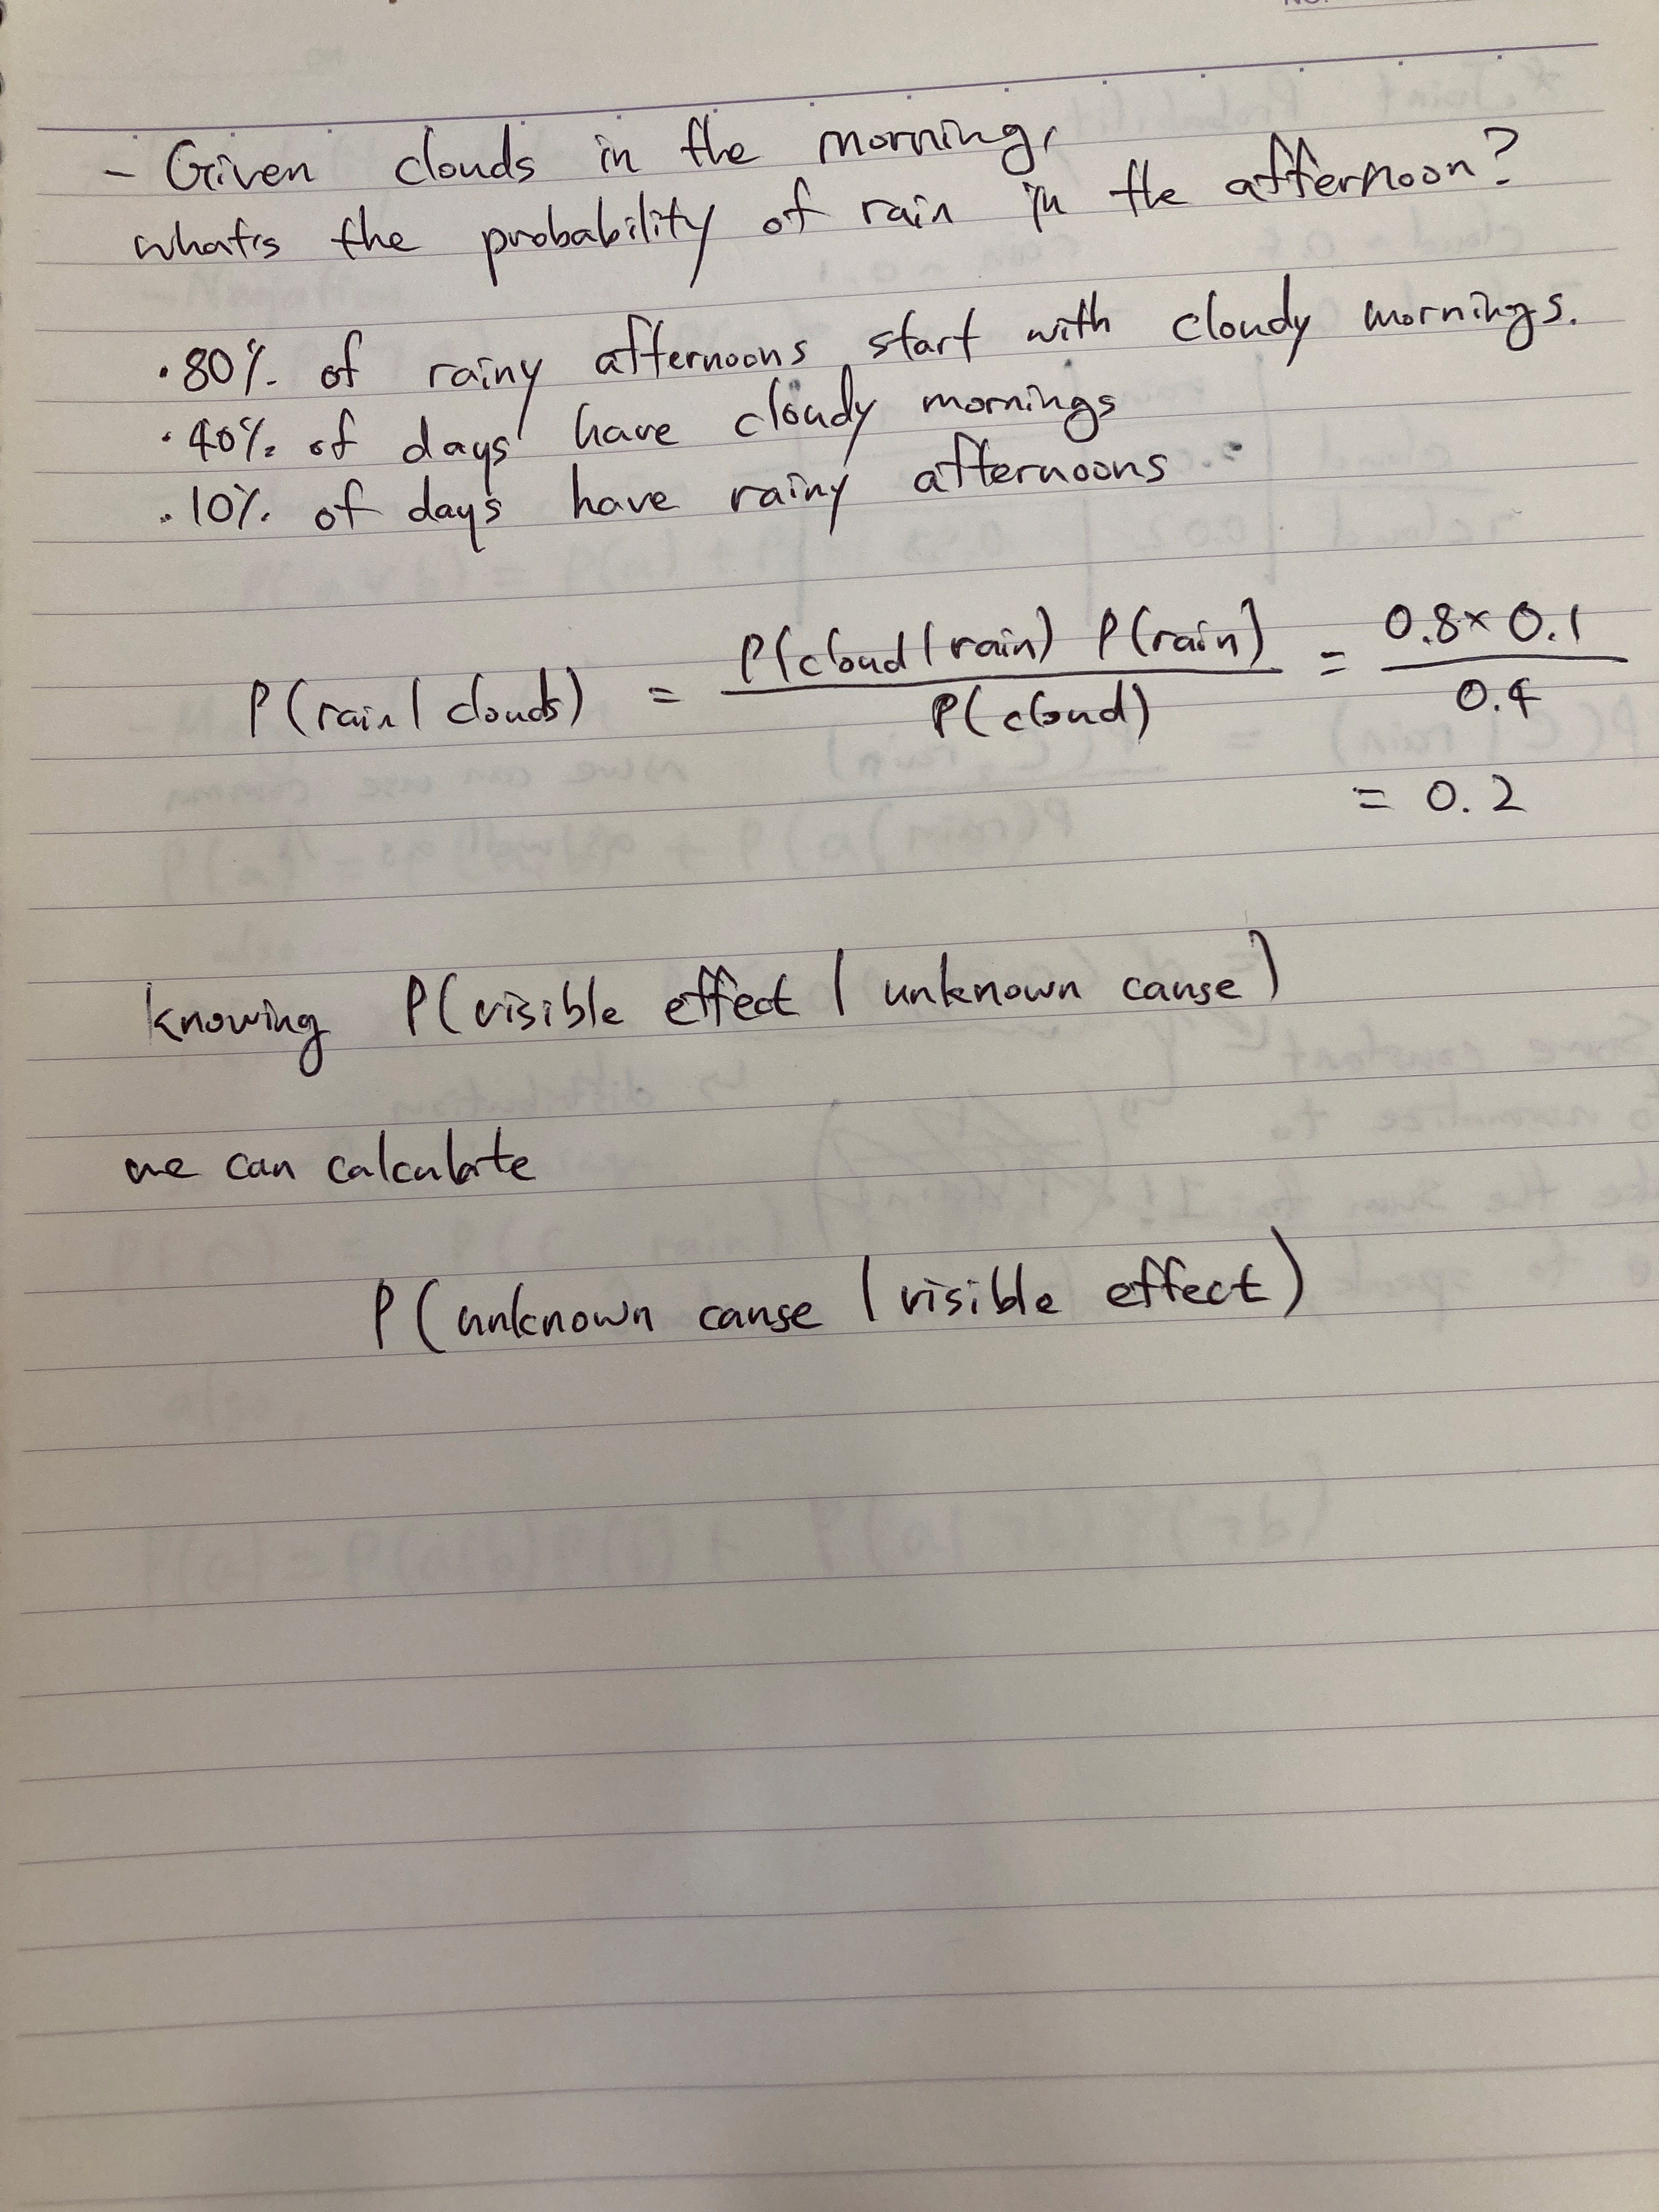 - Given clouds in the morning,
what's the probability of rain in the afternoon?
· 80% of rainy afternoons start with cloudy mornings.
· 40% of days have cloudy mornings
· 10% of days have rainy afternoons
P(rain | clouds) = P(cloud | rain) P(rain) / P(cloud) = 0.8 × 0.1 / 0.4
= 0.2
knowing P(visible effect | unknown cause)
we can calculate
P(unknown cause | visible effect)